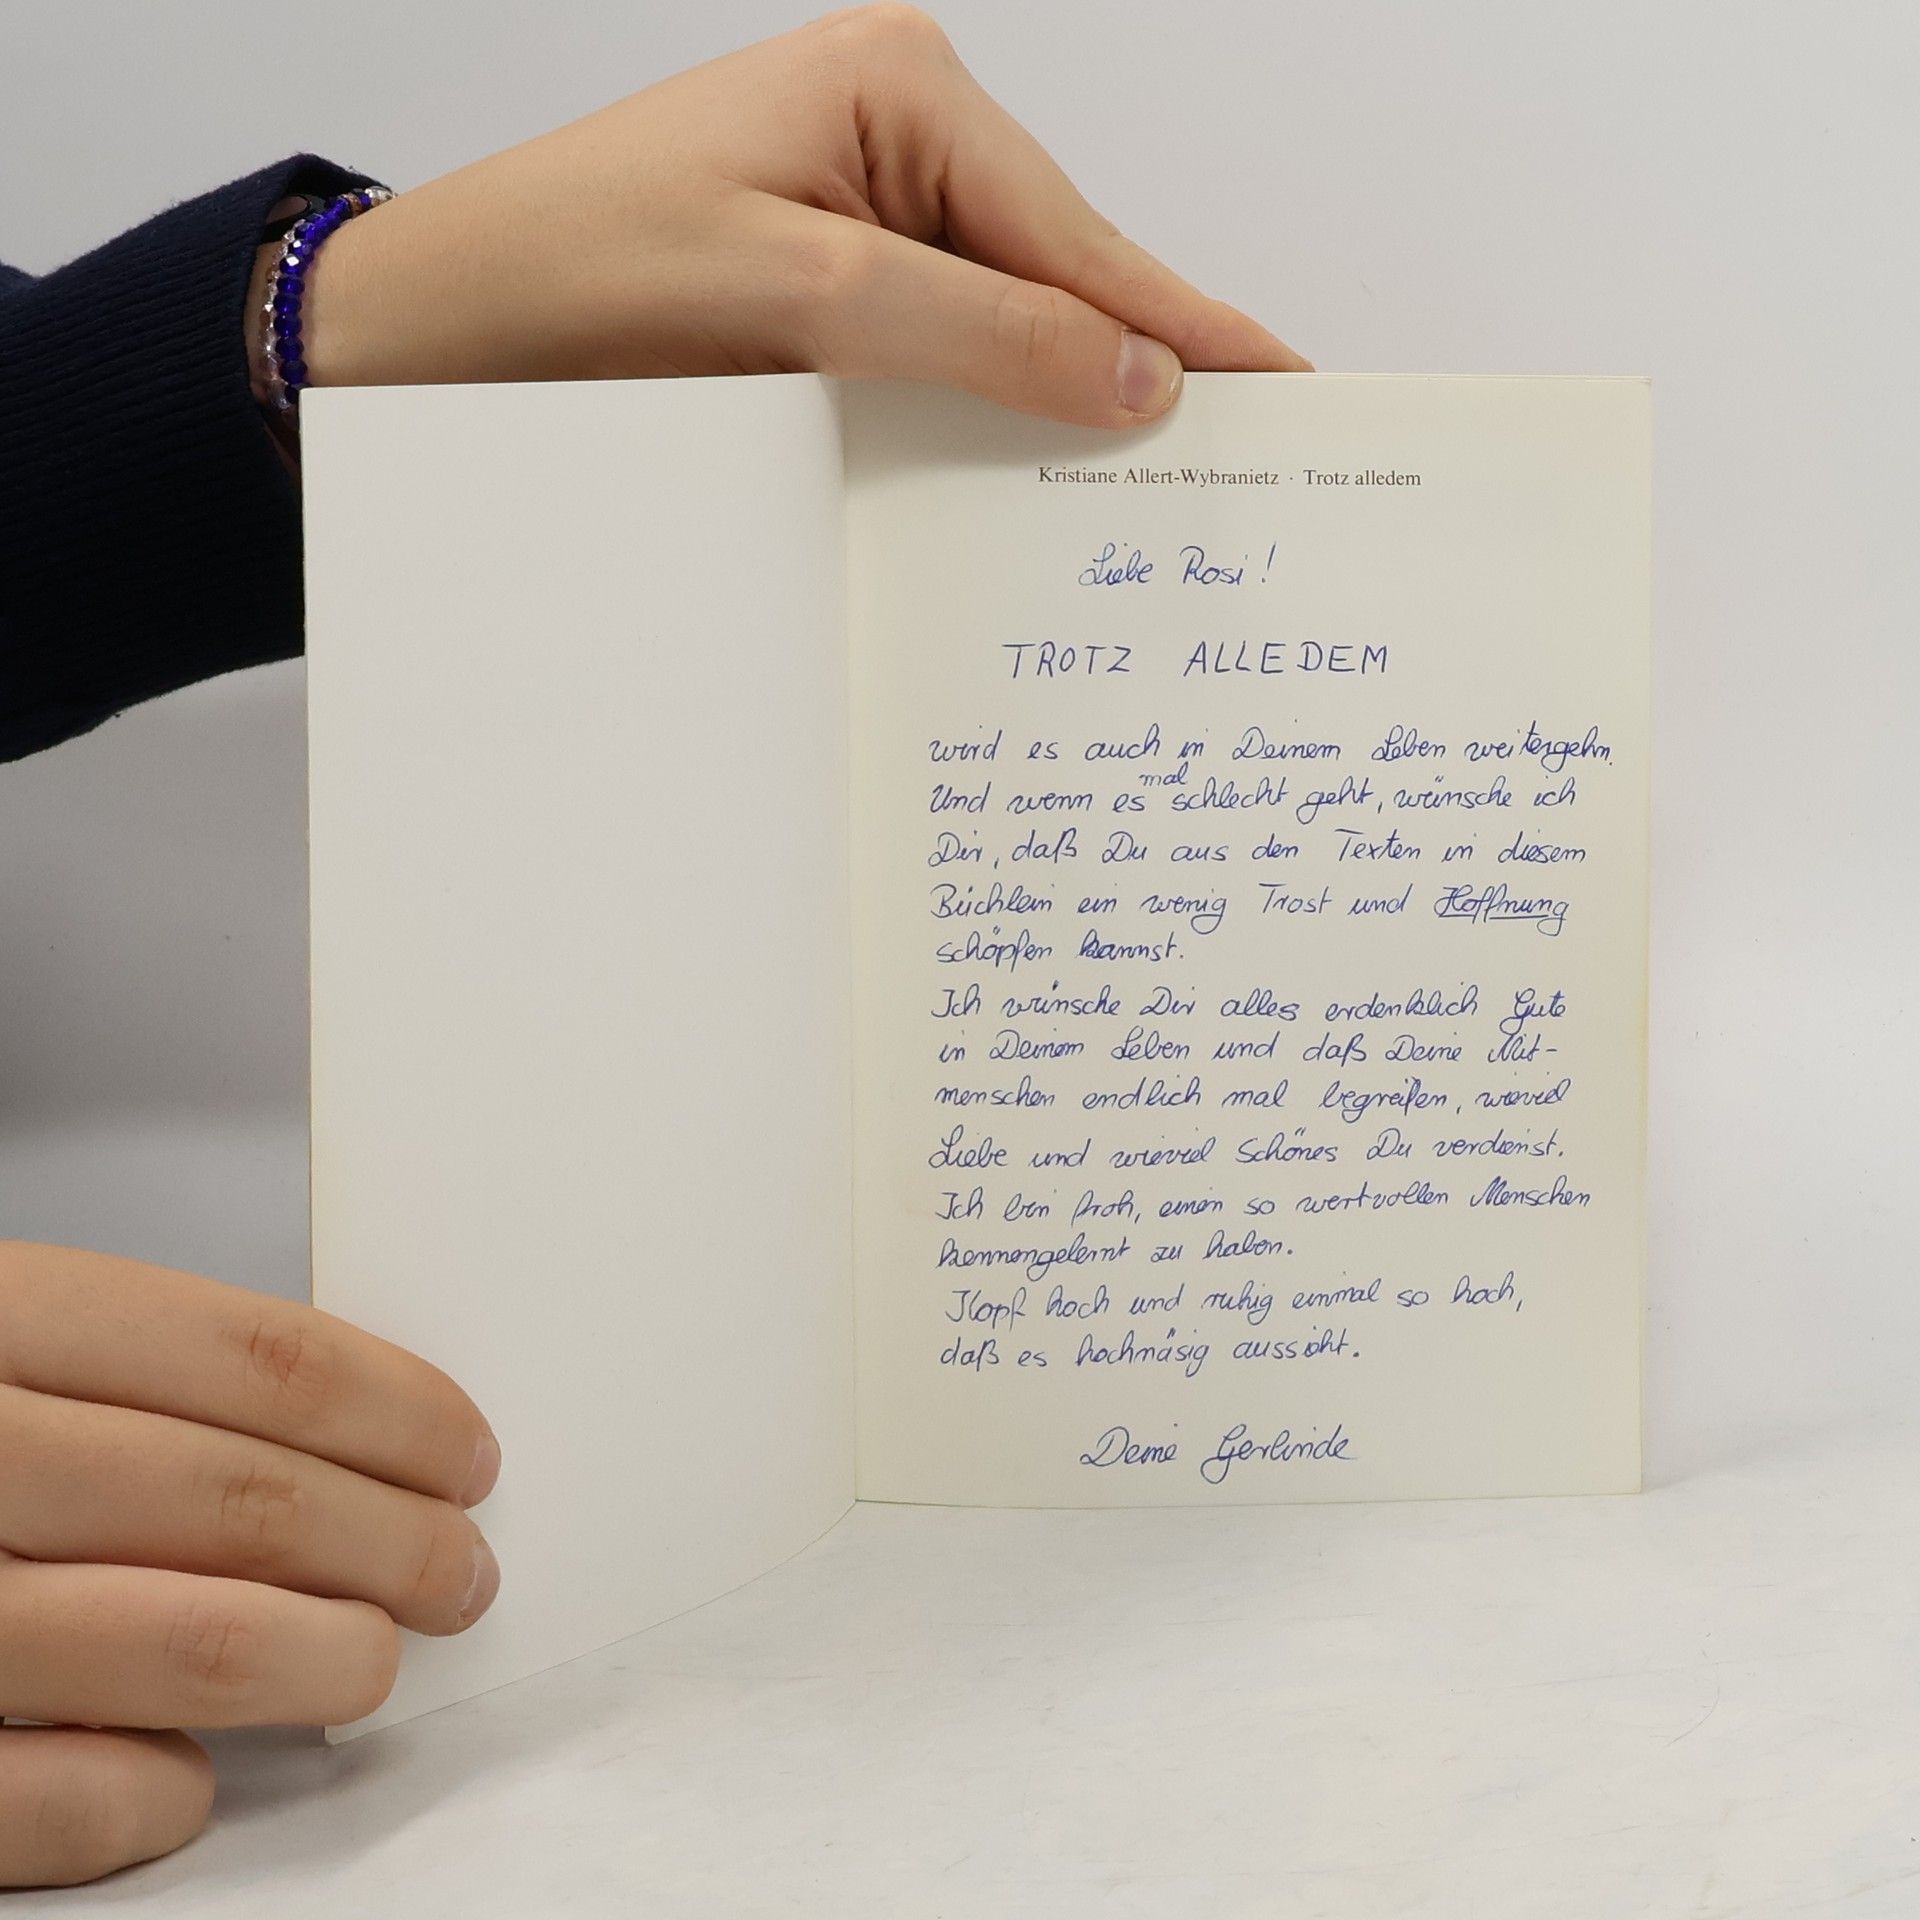 Kristiane Allert-Wybranietz · Trotz alledem
Liebe Rosi!
TROTZ ALLEDEM
wird es auch in Deinem Leben weitergehn.
Und wenn es mal schlecht geht, wünsche ich
Dir, daß Du aus den Texten in diesem
Büchlein ein wenig Trost und Hoffnung
schöpfen kannst.
Ich wünsche Dir alles erdenklich Gute
in Deinem Leben und daß Deine Mit-
menschen endlich mal begreifen, wieviel
Liebe und wieviel Schönes Du verdienst.
Ich bin froh, einen so wertvollen Menschen
kennengelernt zu haben.
Kopf hoch und ruhig einmal so hoch,
daß es hochnäsig aussieht.
Deine Gerlinde